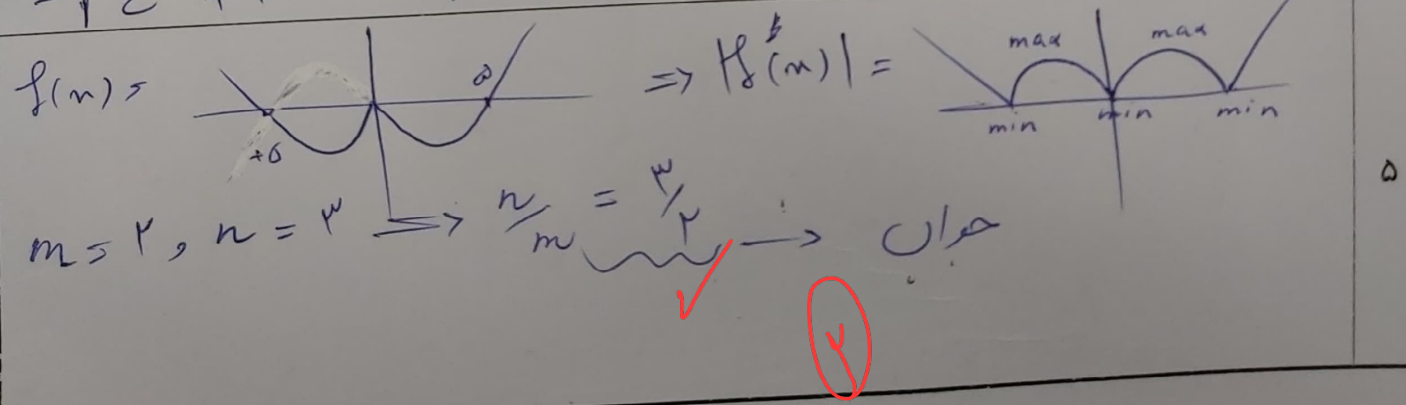 f(x) = ۵ ⇒ |f(x)| = max max
-۵ min min min
۵
m = ۲ , n = ۳ ⇒ n/m = ۳/۲ → جواب
۲